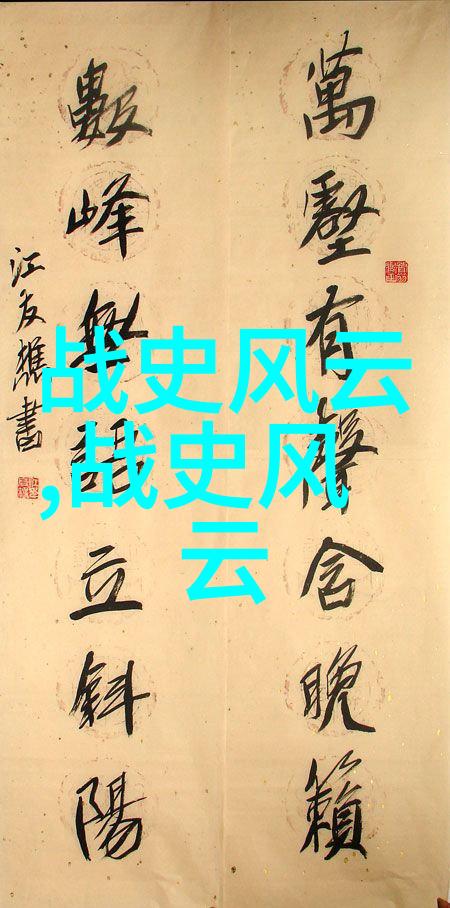 萬壑有聲含晚籟
數峰無語立斜陽
江友樵書
战史风云
,战史风
云